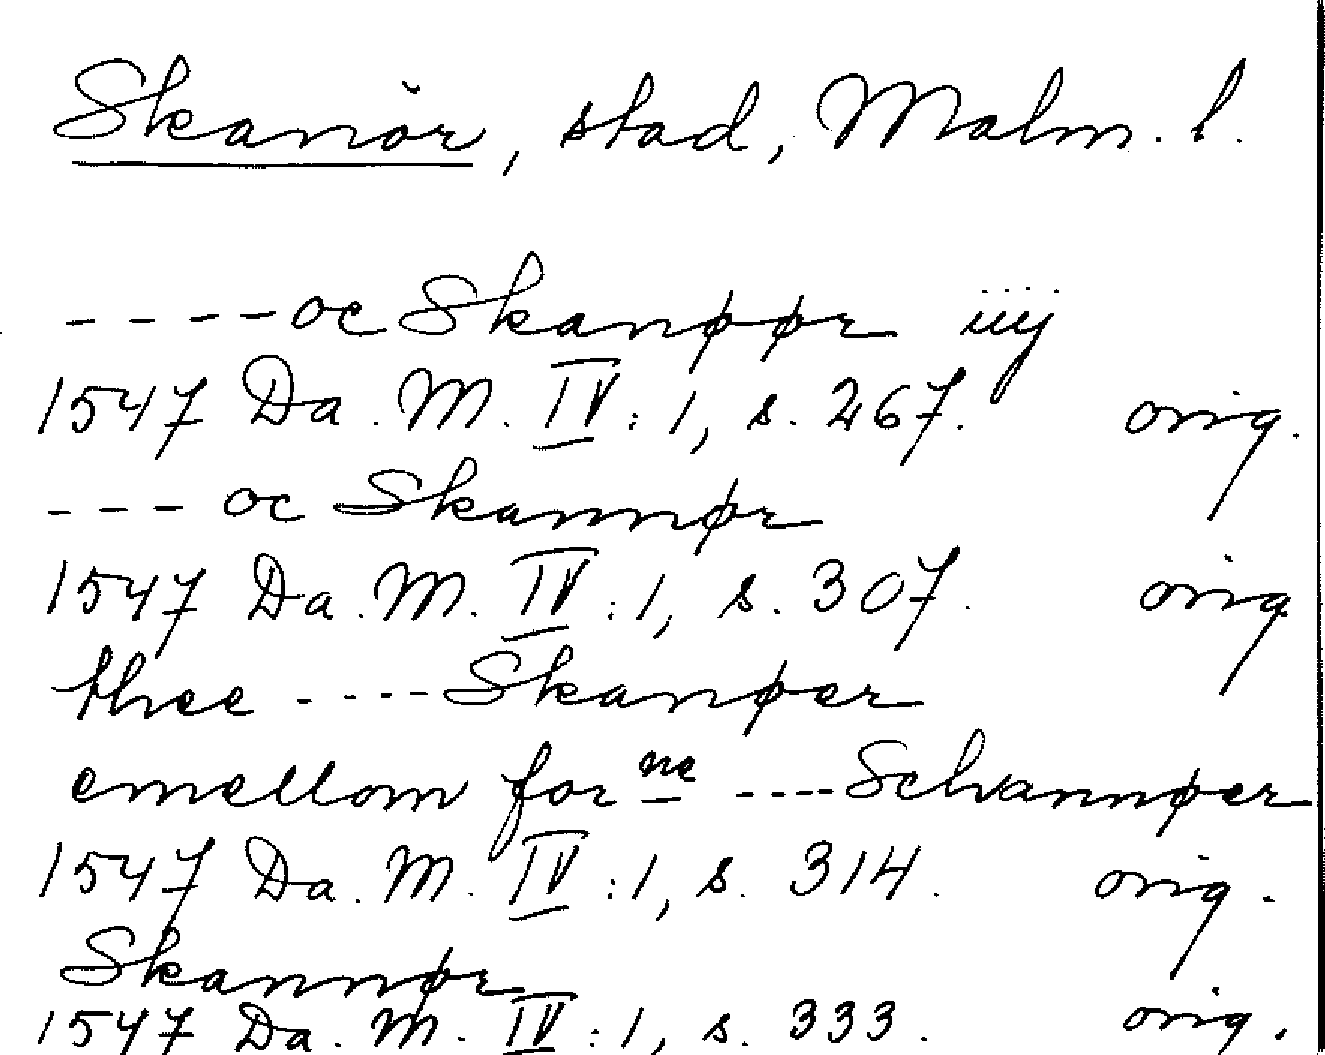 Skanör, stad, Malm. l.
---- oc Skanøør iiij
1547 Da. M. IV:1, s. 267. orig.
--- oc Skannør
1547 Da. M. IV:1, s. 307. orig
thee ---- Skanøer
emellom forne ---- Schannøer
1547 Da. M. IV:1, s. 314. orig.
Skannør
1547 Da. M. IV:1, s. 333. orig.